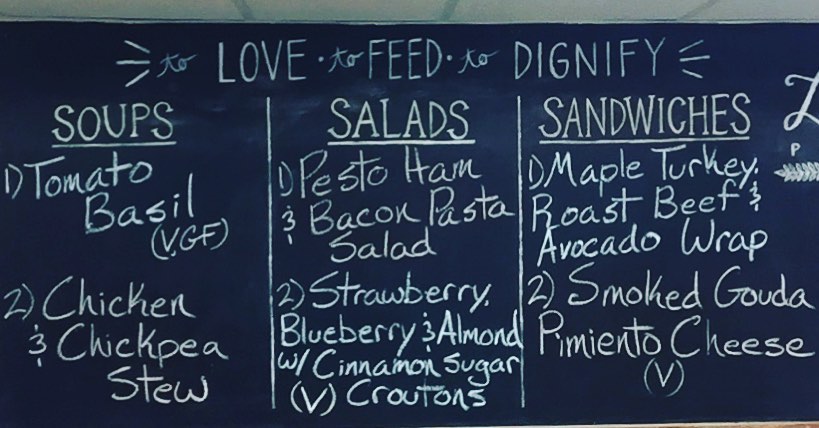 to LOVE · to FEED · to DIGNIFY
SOUPS
1) Tomato
Basil
(V, GF)
2) Chicken
& Chickpea
Stew
SALADS
1) Pesto Ham
& Bacon Pasta
Salad
2) Strawberry,
Blueberry & Almond
w/ Cinnamon Sugar
(V) Croutons
SANDWICHES
1) Maple Turkey,
Roast Beef &
Avocado Wrap
2) Smoked Gouda
Pimiento Cheese
(V)
P